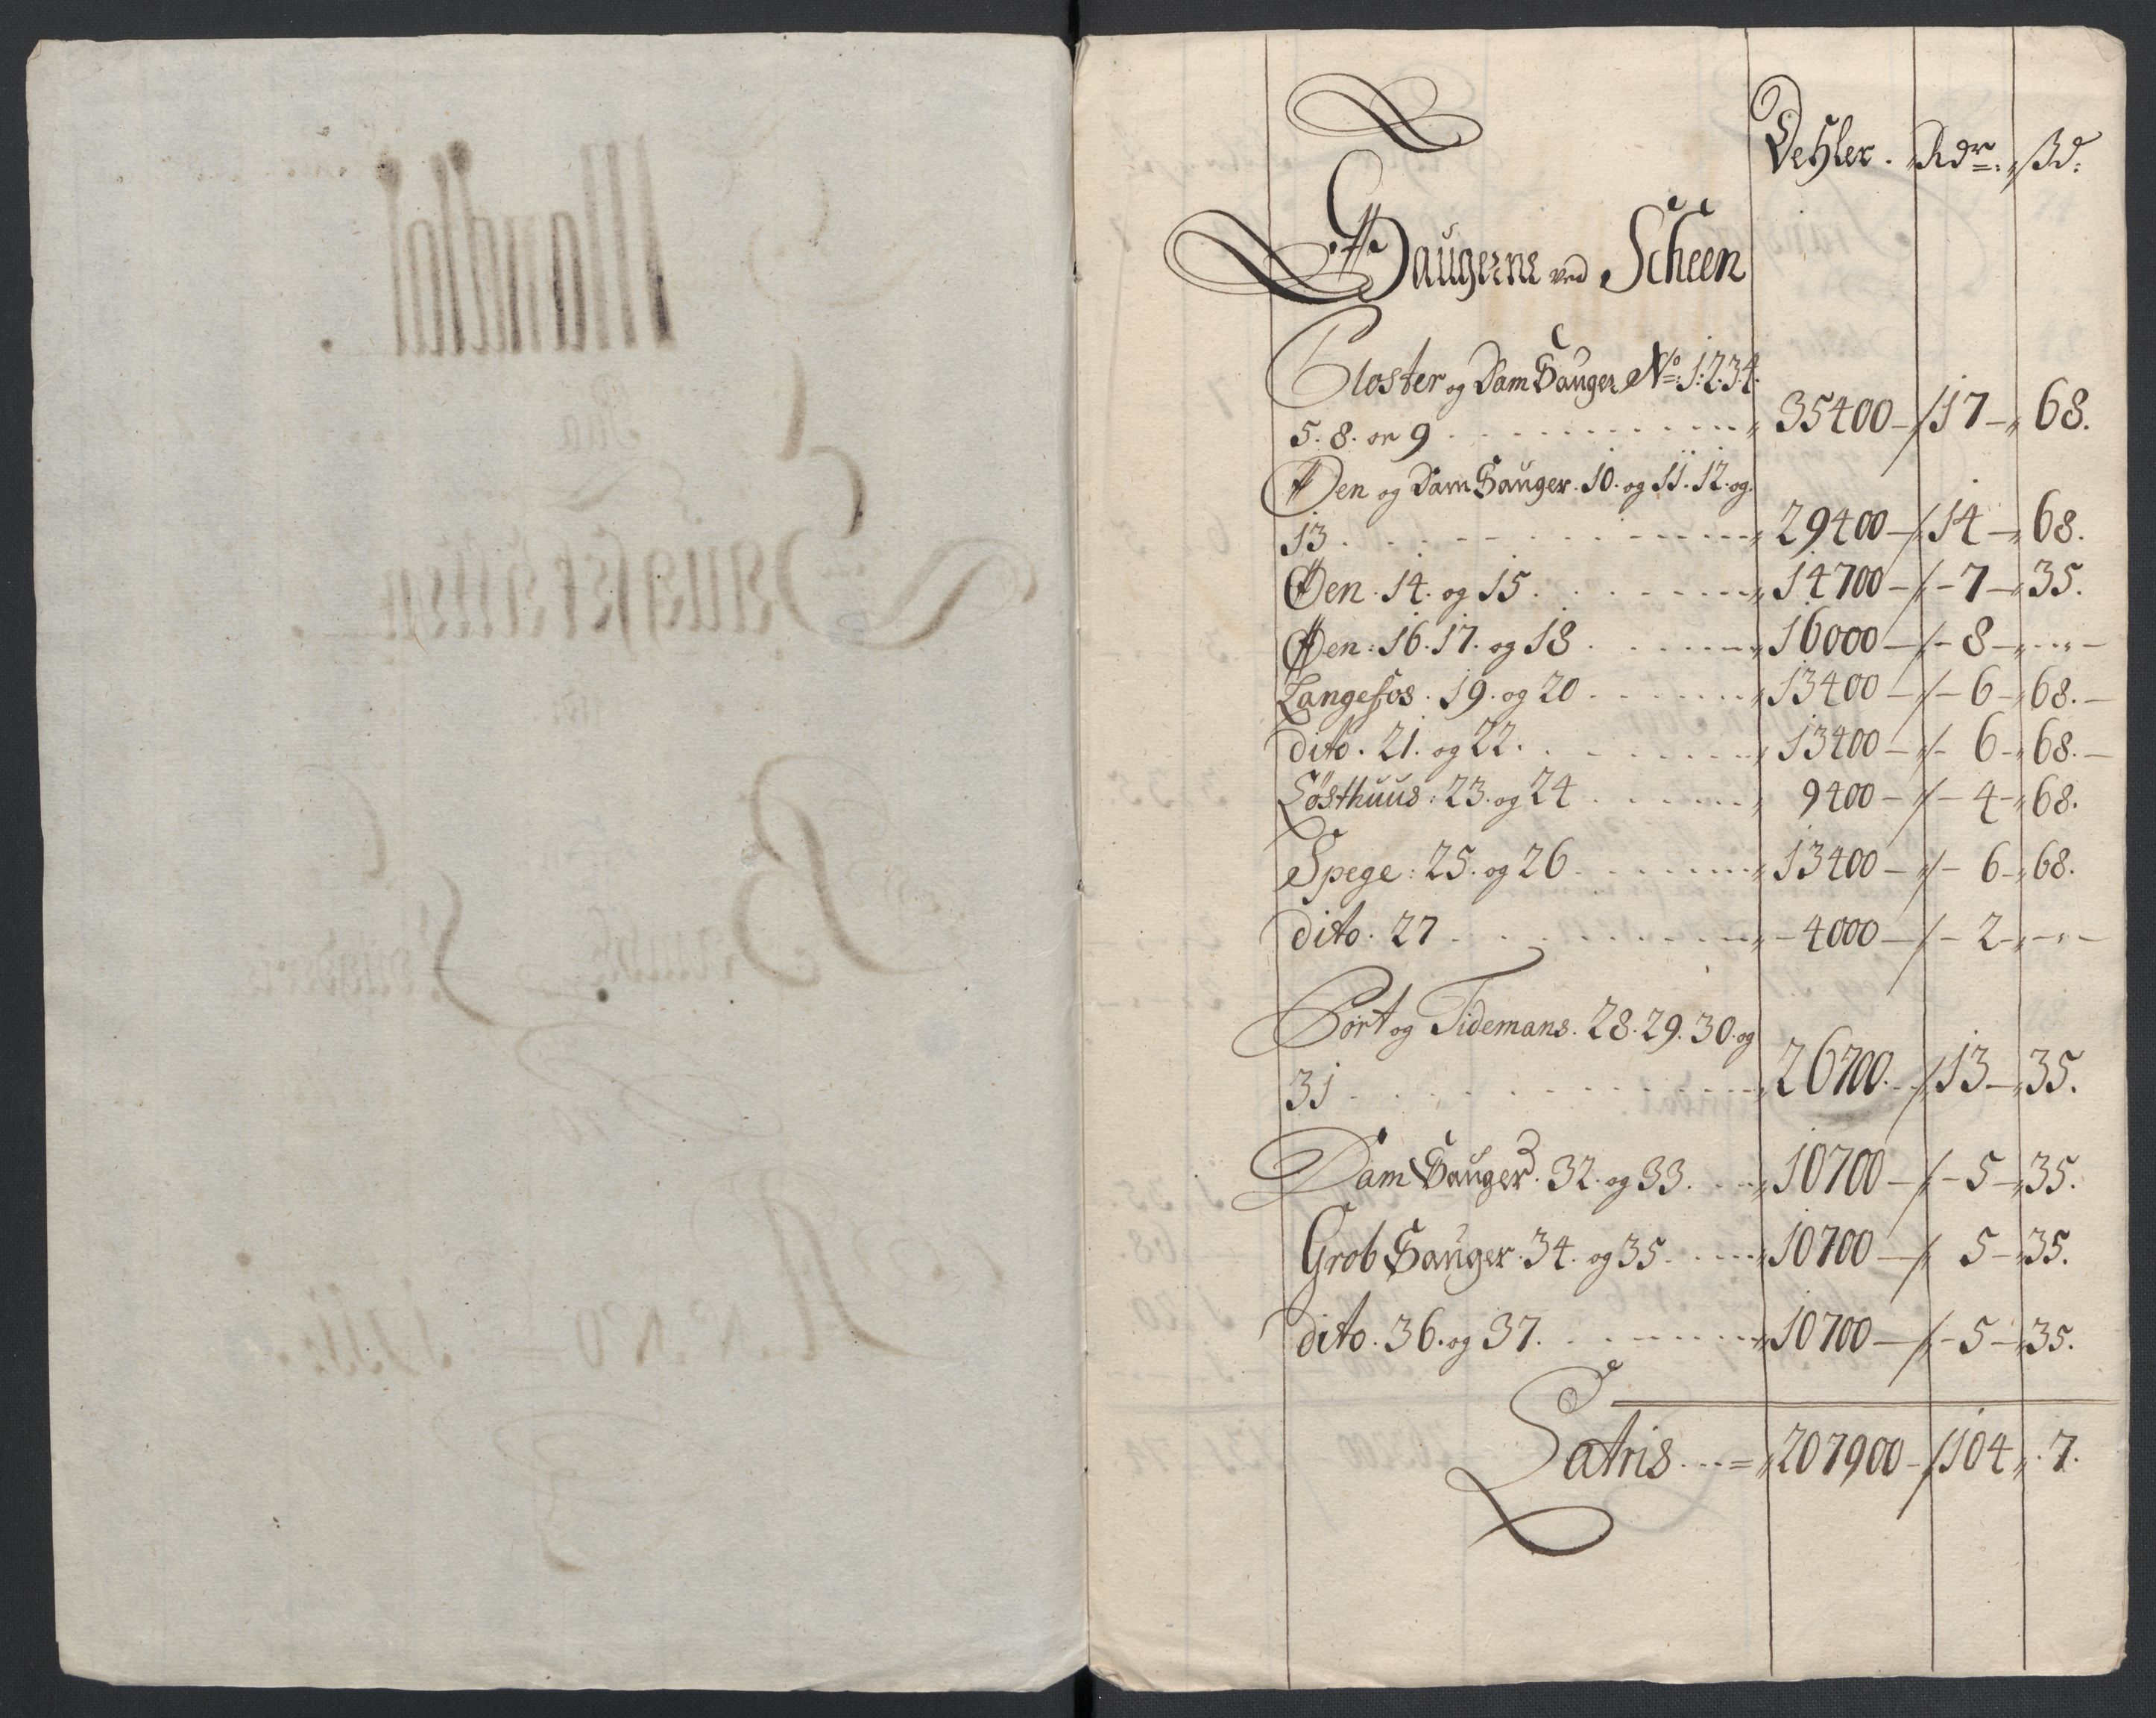 Dehler. Rdr. ß d.
Saugerne ved Scheen
Closter og Dam Sauger No: 1.2.3.4.
5. 8. og 9 35400 17 68.
Øen og Dam Sauger. 10. og 11. 12. og
13 29400 14 68.
Øen. 14. og 15. 14700 7 35.
Øen: 16. 17. og 18 16000 8
Langefos. 19. og 20 13400 6 68.
dito. 21. og 22. 13400 6 68.
Løsthuus: 23. og 24 9400 4 68.
Spege: 25. og 26 13400 6 68.
dito. 27 4000 2
Port og Tidemans. 28. 29. 30. og
31 26700. 13 35.
Dam Sauger. 32. og 33. 10700 5 35.
Grob Sauger. 34. og 35. 10700 5 35.
dito. 36. og 37. 10700 5 35.
Latris 207900 104 7.